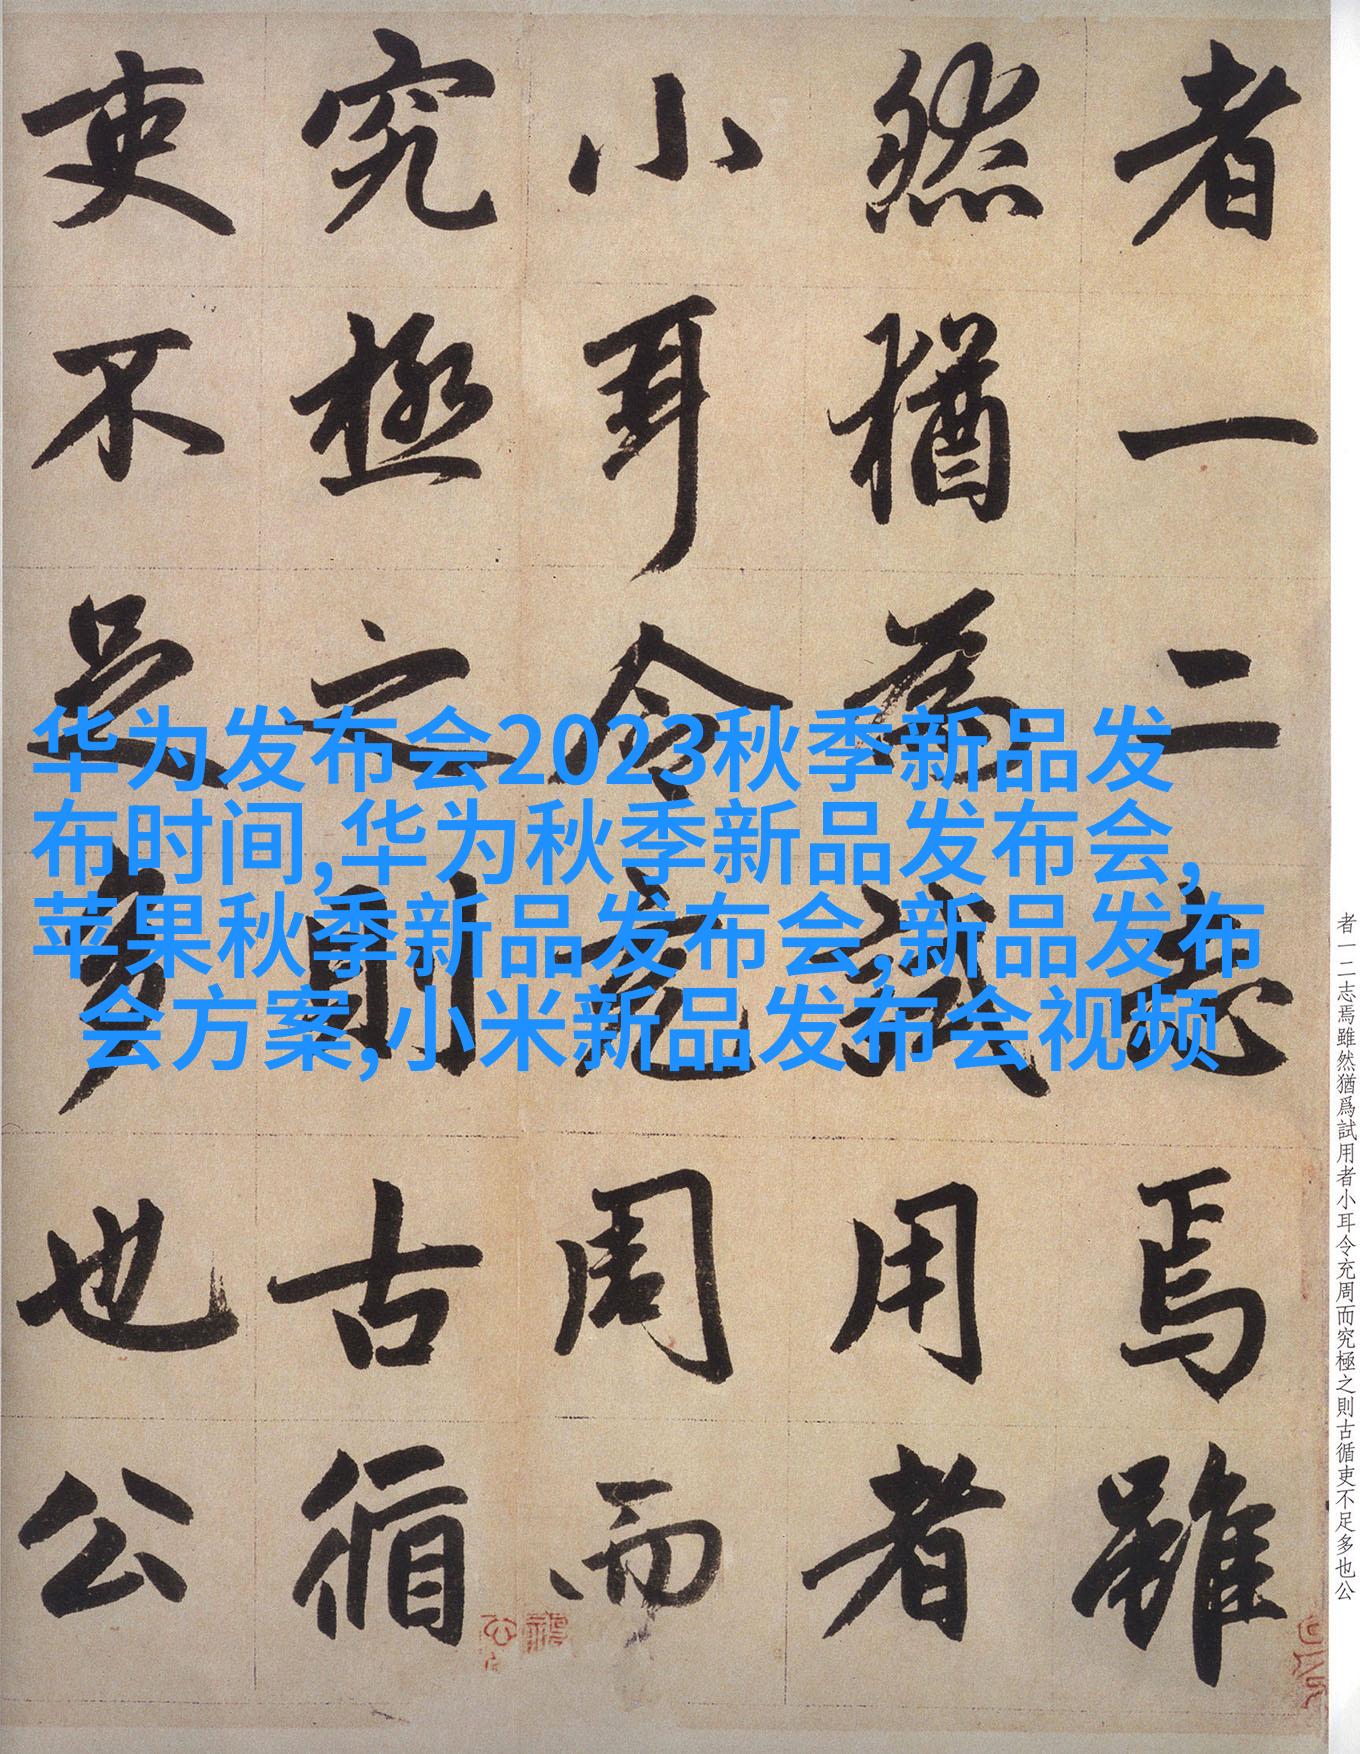 者一二志焉雖
然猶為試用者
小耳令充周而
究極之則古循
吏不足多也公
华为发布会2023秋季新品发
布时间,华为秋季新品发布会,
苹果秋季新品发布会,新品发布
会方案,小米新品发布会视频
者一二志焉雖然猶爲試用者小耳令充周而究極之則古循吏不足多也公